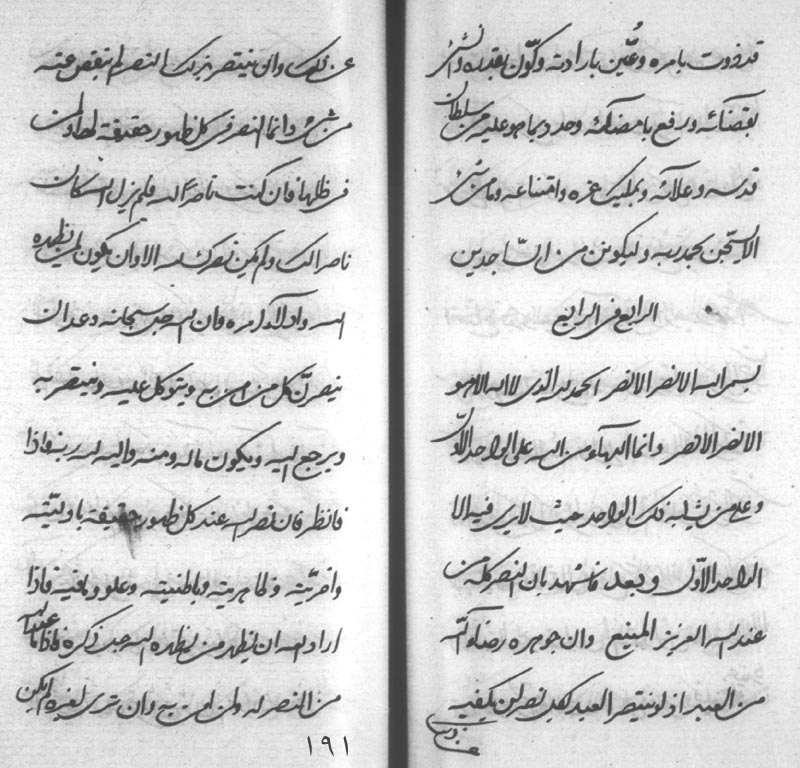 قد ذوت بامره وعُيّن بارادته وكوّن بقدره وانشئ
بقضائه ورفع بامضائه وحدد بما هو عليه من سلطان
قدسه وعلائه ومليك عزه وامتناعه وما من شئ
الا يسبحن بحمد ربه وليكونن من الساجدين
الرابع فى الرابع
بسم الله الانصر الانصر الحمد لله الذى لا اله الا هو
الانصر الانصر وانما البهاء من الله على الواحد الاول
وعلى من يشابه ذلك الواحد حيث لا يرى فيه الا
الواحد الاول وبعد فاشهد بان النصر كله من
عند الله العزيز المنيع وان جوهره رضاء الله
من العبد اذ لو ينتصر العبد كل نصر لن يكفيه
عن ذلك وان ينتصر بترك النصر لم ينقص عنه
من شئ وانما النصر فى كل ظهور حقيقة لها ولمن
فى ظلها فان كنت ناصرا لله فلم يزل الله كان
ناصرا لك ولم يكن نصرك لله الا وان تكون لمن يظهره
الله وادلاء امره وان الله جل سبحانه وعد ان
ينصرن كل من امن به ويتوكل عليه وينتصر به
ويرجع اليه ويكون ماله ومنه واليه لله ربه واذا
فانظر فان نصر الله عند كل ظهور حقيقة باوليته
واخريته وظاهريته وباطنيته وعلو وما فيه فاذا
اراد الله ان يظهر من يظهره الله جل ذكره فاذا ما عند الله
من النصر له ولمن امن به وان ترى لغيره لم يكن
١٩١